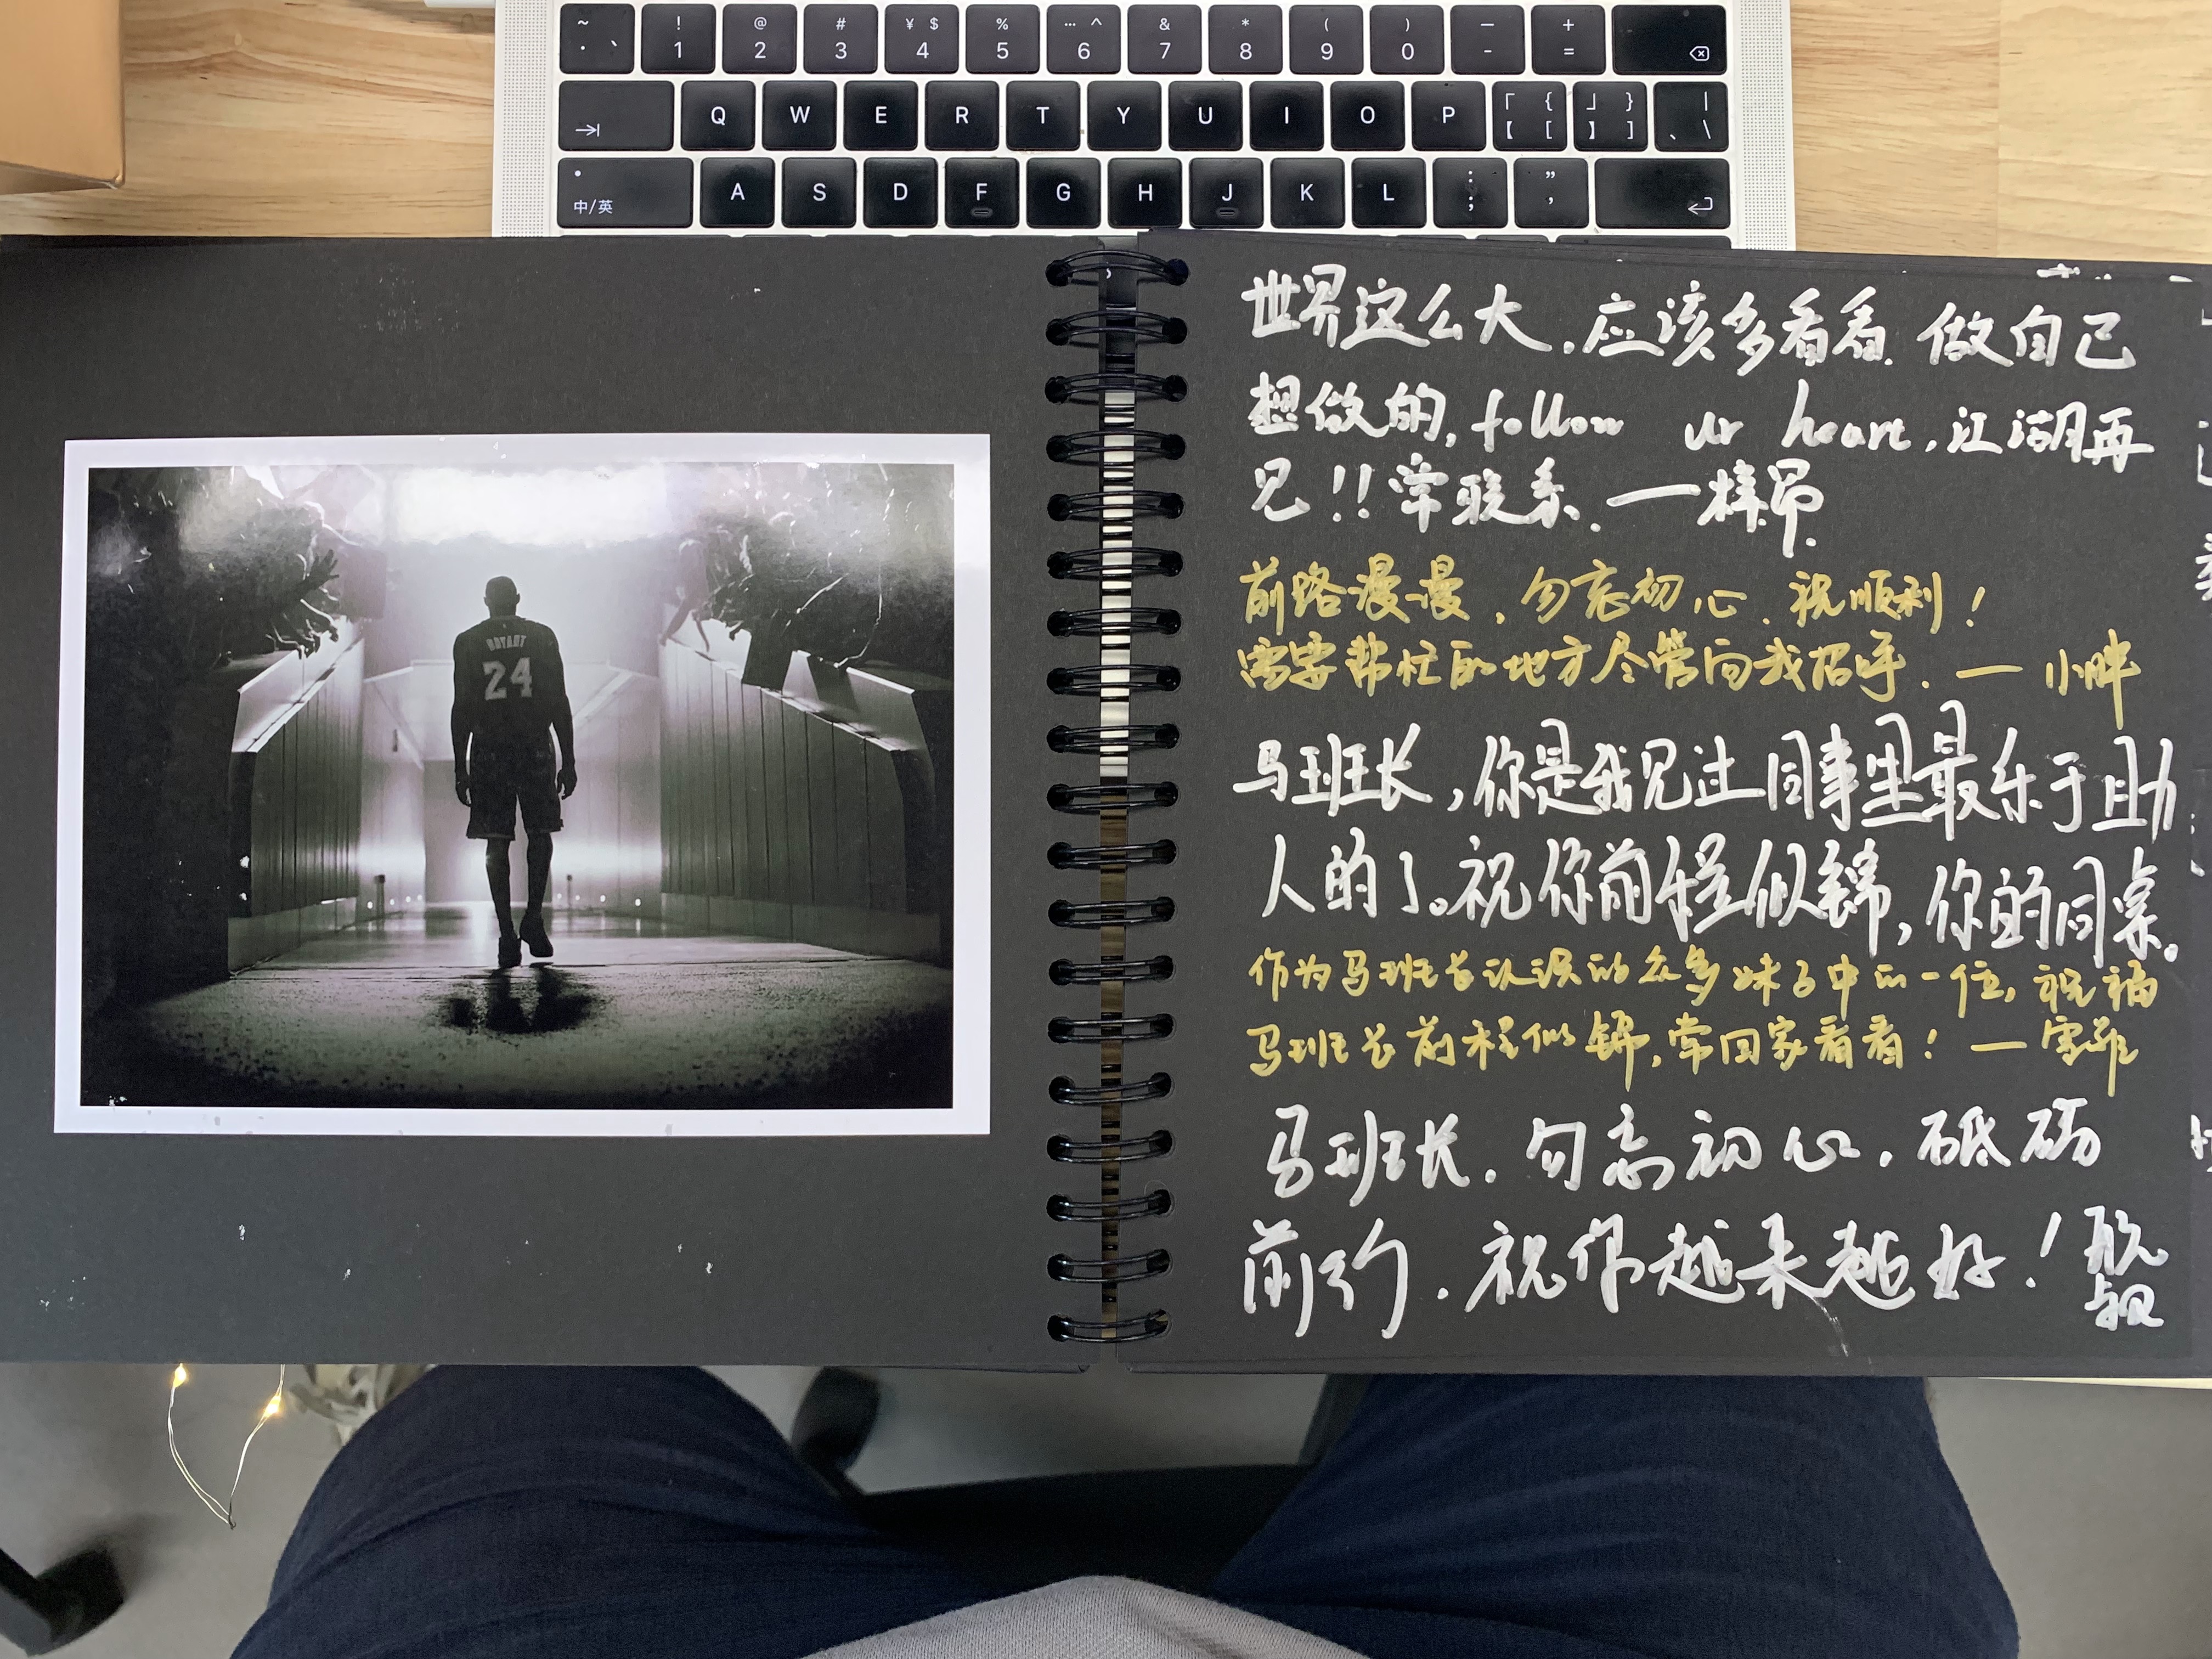 ~ ! @ # ¥ $ % … ^ & * ( ) — +
· ` 1 2 3 4 5 6 7 8 9 0 - =
Q W E R T Y U I O P 「 { 」 } |
【 [ 】 ] 、 \
A S D F G H J K L : ; " ,
中/英
BRYANT
24
世界这么大,应该多看看.做自己
想做的,follow ur heart,江湖再
见!!常联系.—梓昂
前路漫漫,勿忘初心.祝顺利!
需要帮忙的地方尽管向我招呼.—小胖
马班长,你是我见过同事里最乐于助
人的了。祝你前程似锦,你的同桌。
作为马班长认识的众多妹子中的一位,祝福
马班长前程似锦,常回家看看!—雪菲
马班长.勿忘初心.砥砺
前行.祝你越来越好!航
叔